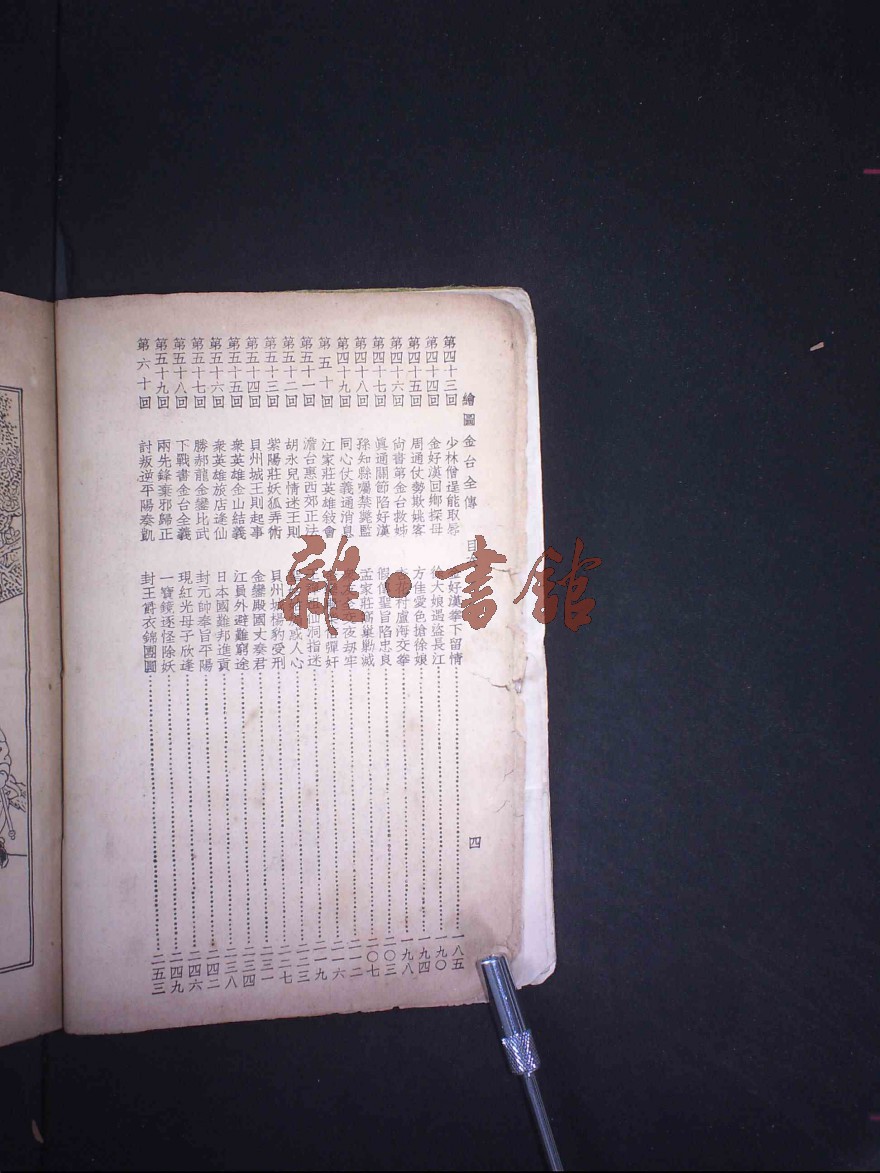 繪圖金台全傳 目 四
第四十三回 少林僧逞能取辱 好漢拳下留情 一八五
第四十四回 金好漢回鄉探母 徐大娘遇盜長江 一九〇
第四十五回 周通仗勢欺姚客 方佳愛色搶徐娘 一九四
第四十六回 尙書第金台救姊 村盧海交拳 一九八
第四十七回 眞通關節陷好漢 假傳聖旨陷忠良 二〇三
第四十八回 孫知縣囑禁斃監 孟家莊窩巢勦滅 二〇七
第四十九回 同心仗義通消息 夜刼牢 二一二
第五十回 江家莊英雄敍會 彈奸 二一六
第五十一回 澹台惠西郊正法 仙洞指迷 二一九
第五十二回 胡永兒情迷王則 惑人心 二二三
第五十三回 紫陽莊妖狐弄術 貝州城楊豹受刑 二二七
第五十四回 貝州城王則起事 金鑾殿國丈奏君 二三一
第五十五回 衆英雄金山結義 江員外避難窮途 二三四
第五十六回 衆英雄旅店逢仙 日本國難邦進貢 二三八
第五十七回 勝郝龍金鑾比武 封元帥奉旨平陽 二四二
第五十八回 下戰書金台全義 現紅光母子欣逢 二四六
第五十九回 兩先鋒棄邪歸正 一寶鏡逐怪除妖 二四九
第六十回 討叛逆平陽奏凱 封王爵衣錦團圓 二五三
雜·書館